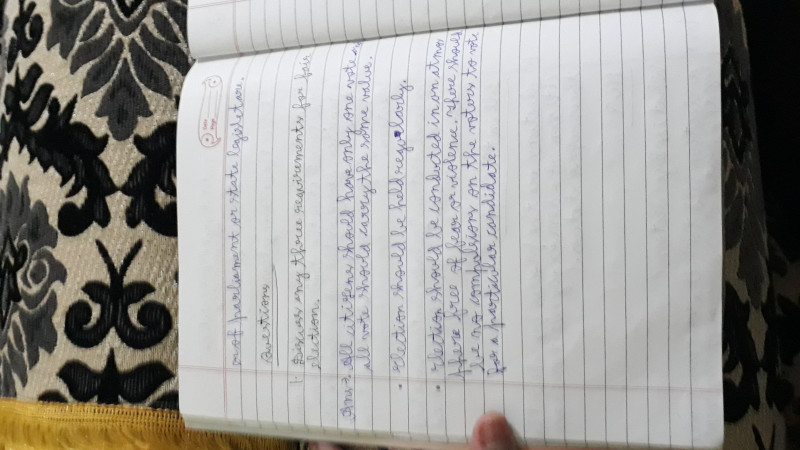 or of parliament or state legislature.
Questions
1. Discuss any three requirements for fair
election.
Ans → All citizens should have only one vote
all vote should carry the same value.
• Election should be held regularly.
• Election should be conducted in an atmos
phere free of fear or violence. There should
be no compulsions on the voters to vote
for a particular candidate.